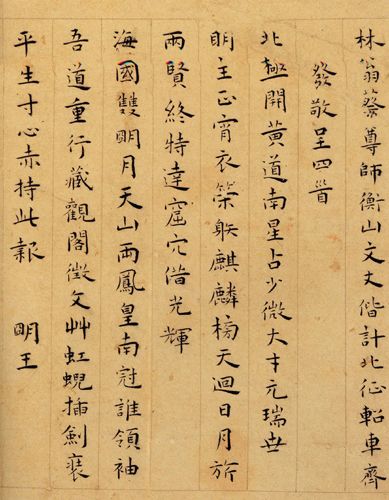 林翁蔡尊師衡山文丈偕計北征軺車齊
發敬呈四首
北極開黃道南星占少微大才元瑞世
明主正宵衣策躲麒麟榜天迴日月旂
兩賢終特達窟穴借光輝
海國雙明月天山兩鳳皇南冠誰領袖
吾道重行藏觀閣徵文艸虹蜺插劍裝
平生寸心赤持此報 明王